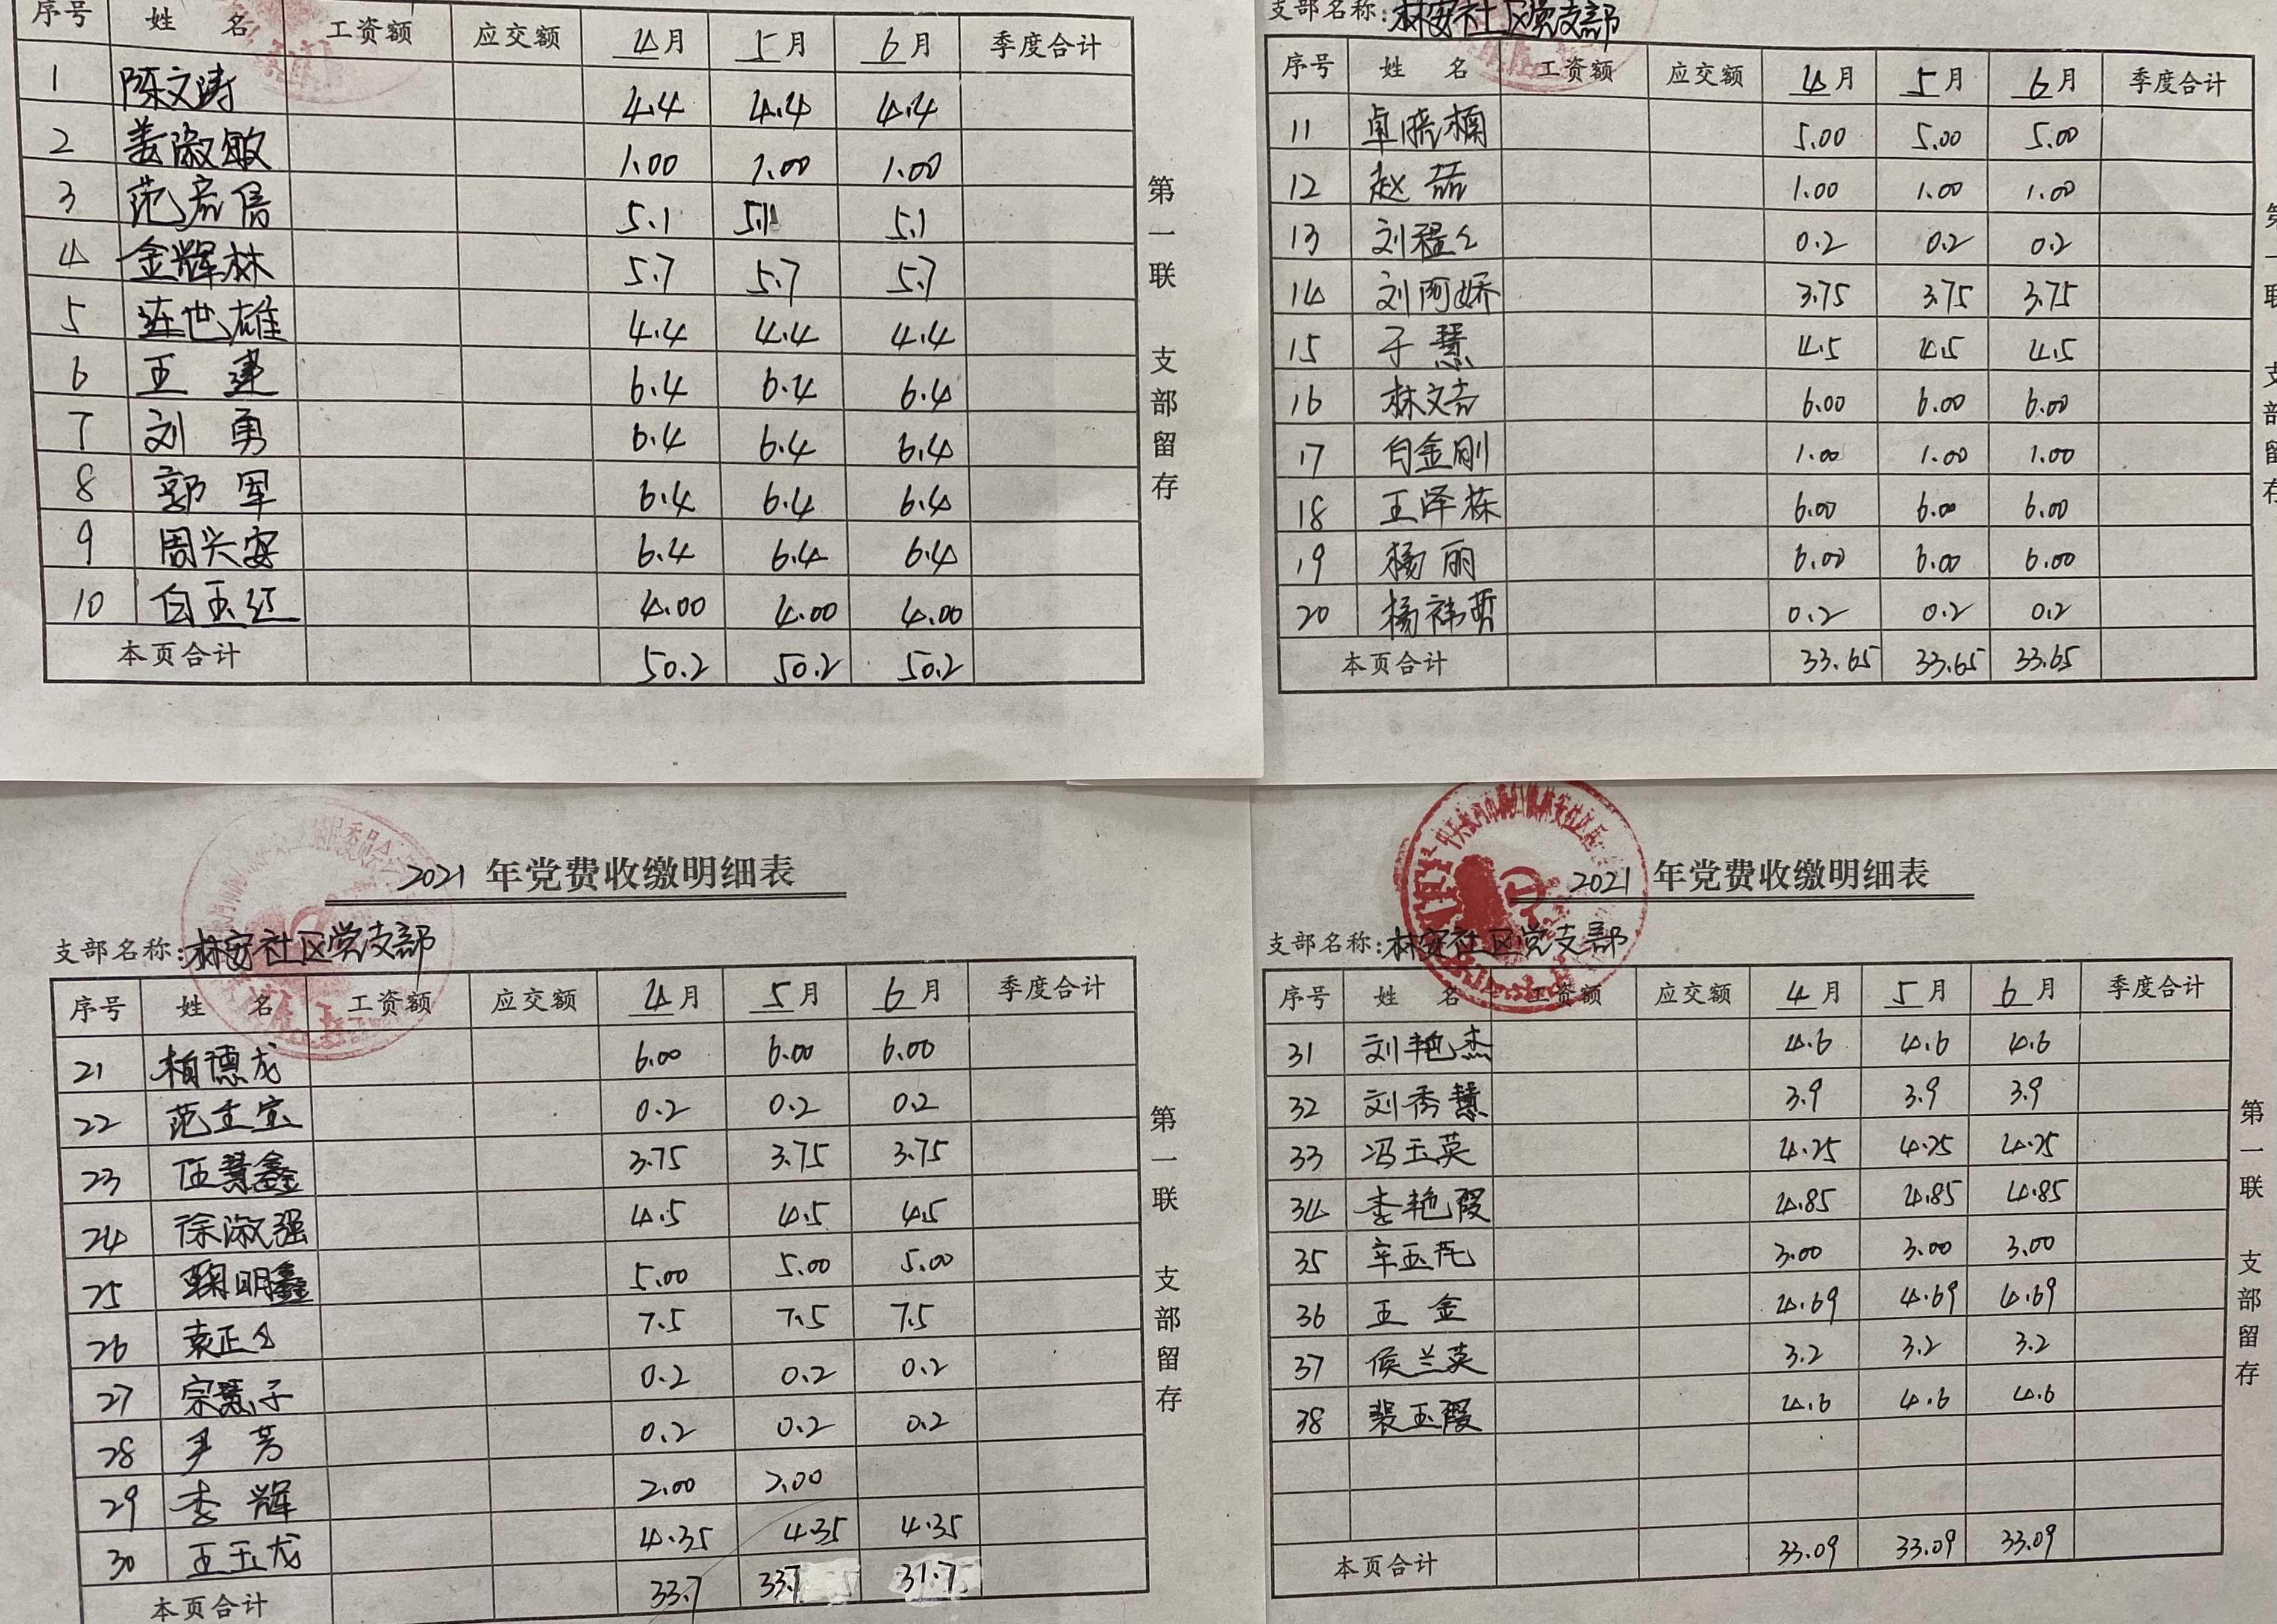 序号 姓 名 工资额 应交额 4月 5月 6月 季度合计
1 陈文涛 4.4 4.4 4.4
2 姜淑敏 1.00 1.00 1.00
3 范彦信 5.1 5.1 5.1
4 金辉林 5.7 5.7 5.7
5 连世雄 4.4 4.4 4.4
6 王建 6.4 6.4 6.4
7 刘勇 6.4 6.4 6.4
8 郭军 6.4 6.4 6.4
9 周兴安 6.4 6.4 6.4
10 白玉红 4.00 4.00 4.00
本页合计 50.2 50.2 50.2
第一联 支部留存
支部名称:林安社区党支部
序号 姓 名 工资额 应交额 4月 5月 6月 季度合计
11 卓晓楠 5.00 5.00 5.00
12 赵喆 1.00 1.00 1.00
13 刘程 0.2 0.2 0.2
14 刘阿娇 3.75 3.75 3.75
15 于慧 4.5 4.5 4.5
16 林文吉 6.00 6.00 6.00
17 白金刚 1.00 1.00 1.00
18 王泽栋 6.00 6.00 6.00
19 杨丽 6.00 6.00 6.00
20 杨祎哲 0.2 0.2 0.2
本页合计 33.65 33.65 33.65
第一联 支部留存
2021 年党费收缴明细表
支部名称:林安社区党支部
序号 姓 名 工资额 应交额 4月 5月 6月 季度合计
21 柏德龙 6.00 6.00 6.00
22 范玉宝 0.2 0.2 0.2
23 伍慧鑫 3.75 3.75 3.75
24 徐淑强 4.5 4.5 4.5
25 鞠明鑫 5.00 5.00 5.00
26 袁正 7.5 7.5 7.5
27 宗慧子 0.2 0.2 0.2
28 尹芳 0.2 0.2 0.2
29 李辉 2.00 2.00
30 王玉龙 4.35 4.35 4.35
本页合计 33.7 33.7 31.7
第一联 支部留存
2021 年党费收缴明细表
支部名称:林安社区党支部
序号 姓 名 工资额 应交额 4月 5月 6月 季度合计
31 刘艳杰 4.6 4.6 4.6
32 刘秀慧 3.9 3.9 3.9
33 冯玉英 4.25 4.25 4.25
34 李艳霞 4.85 4.85 4.85
35 辛玉芹 3.00 3.00 3.00
36 王金 4.69 4.69 4.69
37 侯兰英 3.2 3.2 3.2
38 裴玉霞 4.6 4.6 4.6
本页合计 33.09 33.09 33.09
第一联 支部留存